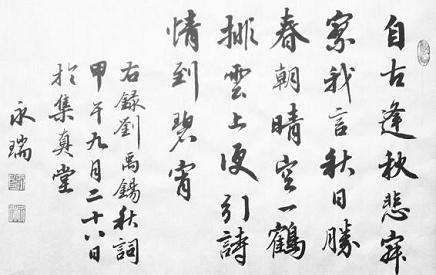 自古逢秋悲寂
寥我言秋日勝
春朝晴空一鶴
排雲上便引詩
情到碧宵
右錄劉禹錫秋詞
甲午九月二十八日
於集真堂
永瑞